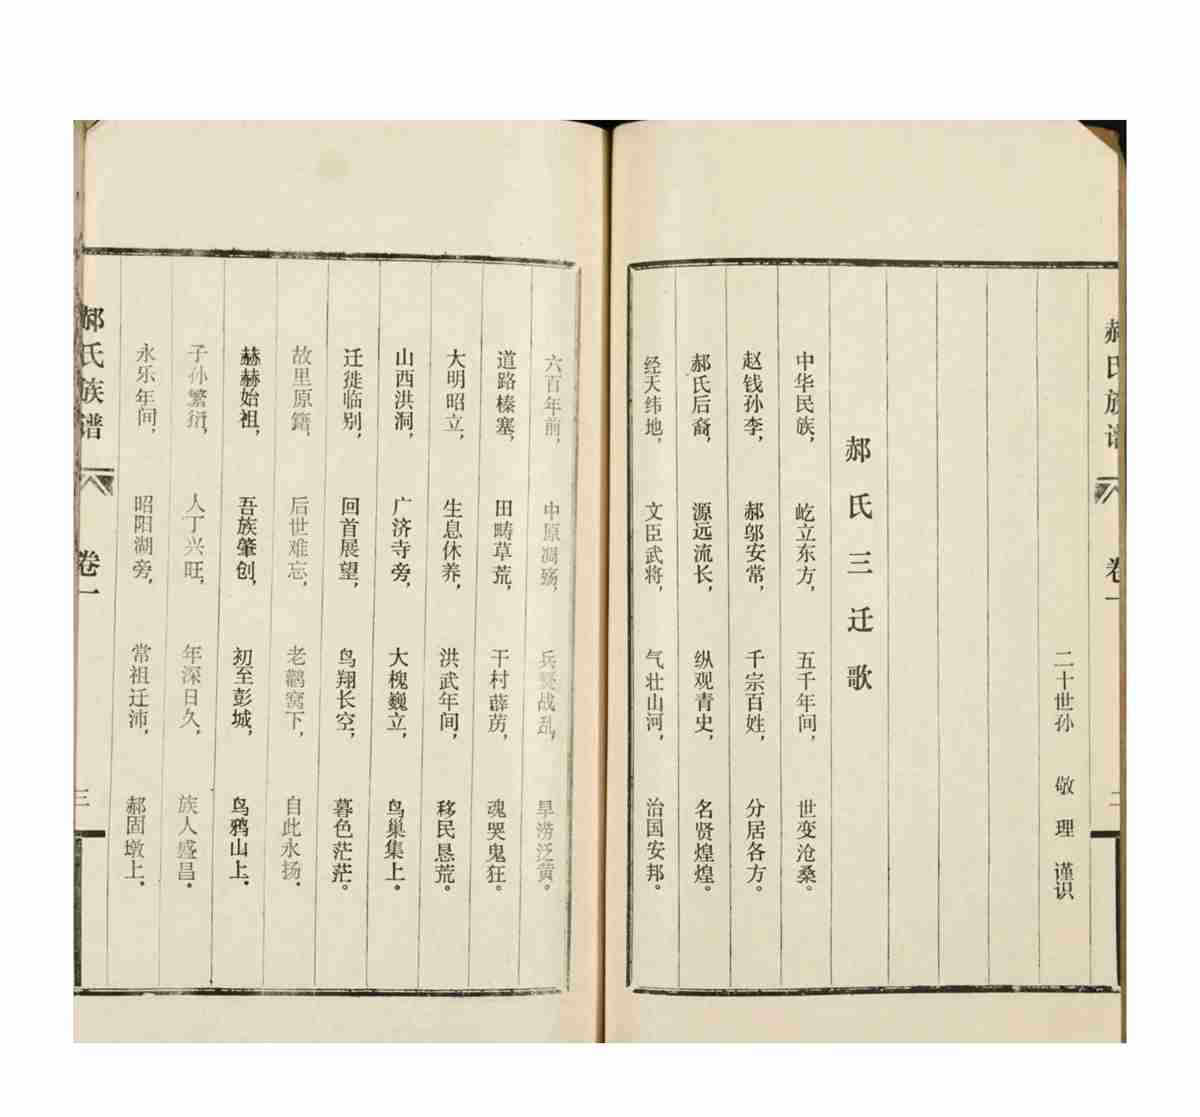 郝氏族谱 卷一
二十世孙 敬理 谨识
郝氏三迁歌
中华民族，屹立东方，五千年间，世变沧桑。
赵钱孙李，郝邬安常，千宗百姓，分居各方。
郝氏后裔，源远流长，纵观青史，名贤煌煌。
经天纬地，文臣武将，气壮山河，治国安邦。
六百年前，中原凋殇，兵燹战乱，旱涝泛黄。
道路榛塞，田畴草荒，干村薜苈，魂哭鬼狂。
大明昭立，生息休养，洪武年间，移民恳荒。
山西洪洞，广济寺旁，大槐巍立，鸟巢集上。
迁徙临别，回首展望，鸟翔长空，暮色茫茫。
故里原籍，后世难忘，老鹳窝下，自此永扬.
赫赫始祖，吾族肇创，初至彭城，鸟鸦山上.
子孙繁衍，人丁兴旺，年深日久，族人盛昌.
永乐年间，昭阳湖旁，常祖迁沛，郝固墩上.
郝氏族谱 卷一 三